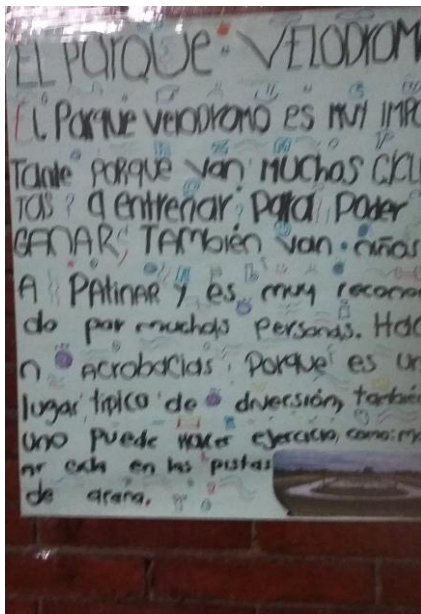 EL PARQUE: VELODROM
El Parque velodromo es muy IMPO
Tante PORQUE van Muchos CICLI
TAS? a entrenar? para poder
GANAR, También van niños
A PAtiNAR y es muy recono
do por muchas Personas. Hac
n Acrobacias, Porque es un
lugar tipico de diversión, también
uno Puede Hacer ejercicio, como:m
en las pistas
de arena.